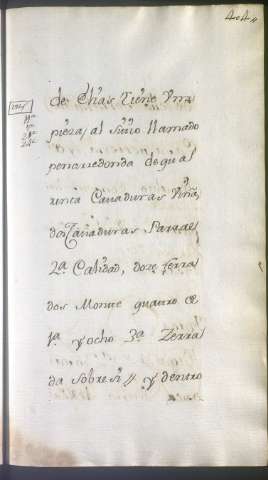 404
de Chas Tiene Una
pieza, al Sitio llamado
penarredonda de qual
renta Cavaduras Viña,
dos Cavaduras Parral
2ª Calidad, doze ferra
dos Monte quatro de
1ª y ocho 3ª Zerra
da sobre si // y dentro